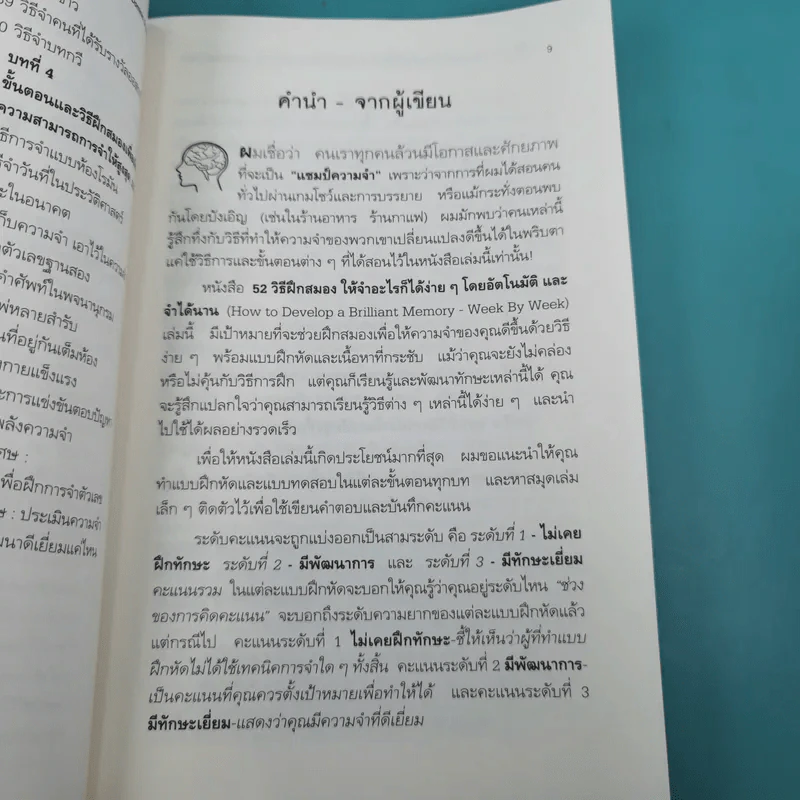 วิธีจำคนที่ได้รับรางวัล
วิธีจำบทกวี
บทที่ 4
ขั้นตอนและวิธีฝึกสมอง
ความสามารถการจำให้สูงสุด
ธีการจำแบบห้องโรมัน
ธีจำวันที่ในประวัติศาสตร์
ะในอนาคต
ก็บความจำ เอาไว้ใน
ตัวเลขฐานสอง
คำศัพท์ในพจนานุกรม
พ่หลายสำรับ
นที่อยู่กันเต็มห้อง
งกายแข็งแรง
ะการแข่งขันตอบปัญหา
พลังความจำ
ศษ :
พื่อฝึกการจำตัวเลข
ษ : ประเมินความจำ
ฒนาดีเยี่ยมแค่ไหน
9
คำนำ - จากผู้เขียน
ผมเชื่อว่า คนเราทุกคนล้วนมีโอกาสและศักยภาพ
ที่จะเป็น "แชมป์ความจำ" เพราะว่าจากการที่ผมได้สอนคน
ทั่วไปผ่านเกมโชว์และการบรรยาย หรือแม้กระทั่งตอนพบ
กันโดยบังเอิญ (เช่นในร้านอาหาร ร้านกาแฟ) ผมมักพบว่าคนเหล่านี้
รู้สึกทึ่งกับวิธีที่ทำให้ความจำของพวกเขาเปลี่ยนแปลงดีขึ้นได้ในพริบตา
แค่ใช้วิธีการและขั้นตอนต่าง ๆ ที่ได้สอนไว้ในหนังสือเล่มนี้เท่านั้น!
หนังสือ 52 วิธีฝึกสมอง ให้จำอะไรก็ได้ง่าย ๆ โดยอัตโนมัติ และ
จำได้นาน (How to Develop a Brilliant Memory - Week By Week)
เล่มนี้ มีเป้าหมายที่จะช่วยฝึกสมองเพื่อให้ความจำของคุณดีขึ้นด้วยวิธี
ง่าย ๆ พร้อมแบบฝึกหัดและเนื้อหาที่กระชับ แม้ว่าคุณจะยังไม่คล่อง
หรือไม่คุ้นกับวิธีการฝึก แต่คุณก็เรียนรู้และพัฒนาทักษะเหล่านี้ได้ คุณ
จะรู้สึกแปลกใจว่าคุณสามารถเรียนรู้วิธีต่าง ๆ เหล่านี้ได้ง่าย ๆ และนำ
ไปใช้ได้ผลอย่างรวดเร็ว
เพื่อให้หนังสือเล่มนี้เกิดประโยชน์มากที่สุด ผมขอแนะนำให้คุณ
ทำแบบฝึกหัดและแบบทดสอบในแต่ละขั้นตอนทุกบท และหาสมุดเล่ม
เล็ก ๆ ติดตัวไว้เพื่อใช้เขียนคำตอบและบันทึกคะแนน
ระดับคะแนนจะถูกแบ่งออกเป็นสามระดับ คือ ระดับที่ 1 - ไม่เคย
ฝึกทักษะ ระดับที่ 2 - มีพัฒนาการ และ ระดับที่ 3 - มีทักษะเยี่ยม
คะแนนรวม ในแต่ละแบบฝึกหัดจะบอกให้คุณรู้ว่าคุณอยู่ระดับไหน "ช่วง
ของการคิดคะแนน" จะบอกถึงระดับความยากของแต่ละแบบฝึกหัดแล้ว
แต่กรณีไป คะแนนระดับที่ 1 ไม่เคยฝึกทักษะ-ชี้ให้เห็นว่าผู้ที่ทำแบบ
ฝึกหัดไม่ได้ใช้เทคนิคการจำใด ๆ ทั้งสิ้น คะแนนระดับที่ 2 มีพัฒนาการ-
เป็นคะแนนที่คุณควรตั้งเป้าหมายเพื่อทำให้ได้ และคะแนนระดับที่ 3
มีทักษะเยี่ยม-แสดงว่าคุณมีความจำที่ดีเยี่ยม